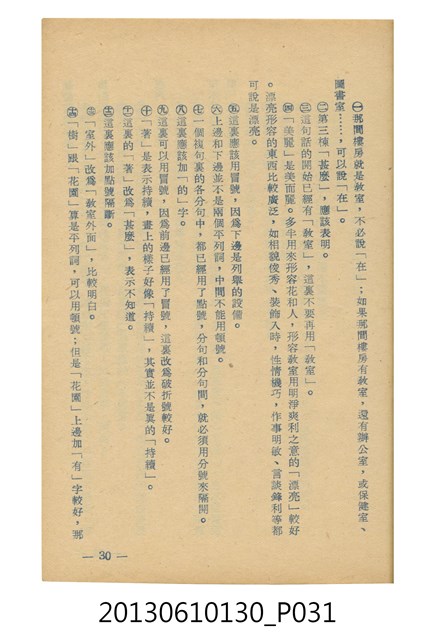 ㊀那間樓房就是教室，不必說「在」；如果那間樓房有教室，還有辦公室，或保健室、
圖書室……，可以說「在」。
㊁第三棟「甚麼」，應該表明。
㊂這句話的開始已經有「教室」，這裏不要再用「教室」。
㊃「美麗」是美而麗。多半用來形容花和人，形容教室用明淨爽利之意的「漂亮」較好
。漂亮形容的東西比較廣泛，如相貌俊秀、裝飾入時，性情機巧，作事明敏、言談鋒利等都
可說是漂亮。
㊄這裏應該用冒號，因為下邊是列舉的設備。
㊅上邊和下邊並不是兩個平列詞，中間不能用頓號。
㊆一個複句裏的各分句中，都已經用了點號，分句和分句間，就必須用分號來隔開。
㊇這裏應該加「的」字。
㊈這裏可以用冒號，因為前邊已經用了冒號，這裏改為破折號較好。
㊉「著」是表示持續，畫上的樣子好像「持續」，其實並不是真的「持續」。
㊉㊀這裏的「著」改為「甚麼」，表示不知道。
㊉㊁這裏應該加點號隔斷。
㊉㊂「室外」改為「教室外面」，比較明白。
㊉㊃「樹」跟「花園」算是平列詞，可以用頓號；但是「花園」上邊加「有」字較好，那
— 30 —
20130610130_P031